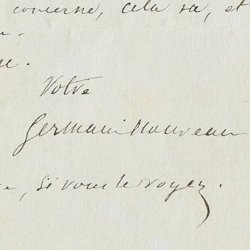 concerne, cela va, et
Votre
Germain Nouveau
, si vous le voyez.